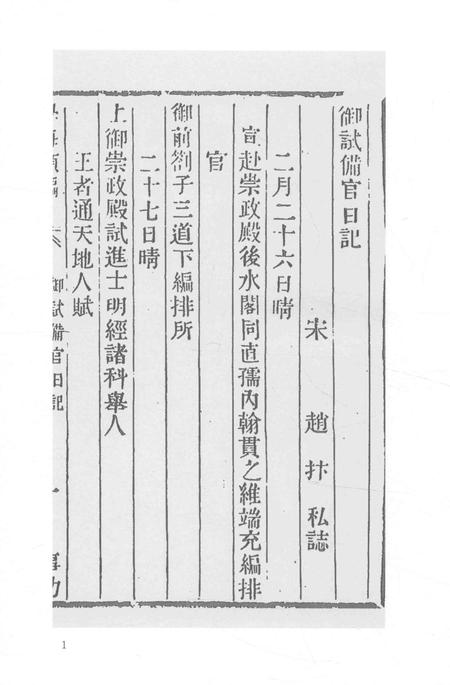 御試備官日記
宋 趙抃私誌
二月二十六日晴
宣赴崇政殿後水閣同直孺內翰貫之維端充編排
官
御前劄子三道下編排所
二十七日晴
上御崇政殿試進士明經諸科舉人
王者通天地人賦
御試備官日記 一
1